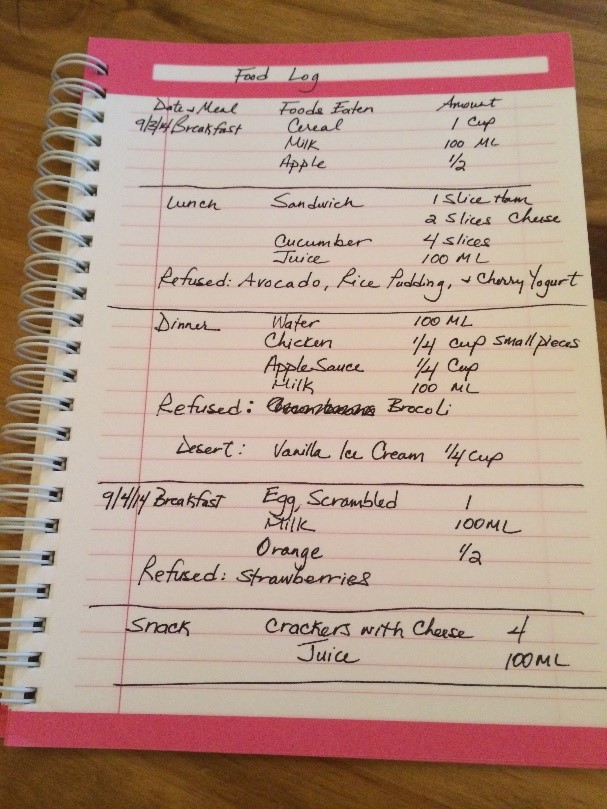 Food Log
Date & Meal Foods Eaten Amount
9/3/14 Breakfast Cereal 1 Cup
Milk 100 ML
Apple 1/2
Lunch Sandwich 1 Slice Ham
2 Slices Cheese
Cucumber 4 slices
Juice 100 ML
Refused: Avocado, Rice Pudding, & Cherry Yogurt
Dinner Water 100 ML
Chicken 1/4 cup small pieces
Apple Sauce 1/4 Cup
Milk 100 ML
Refused: Brocoli
Desert: Vanilla Ice Cream 1/4 cup
9/4/14 Breakfast Egg, Scrambled 1
Milk 100ML
Orange 1/2
Refused: Strawberries
Snack Crackers with Cheese 4
Juice 100ML